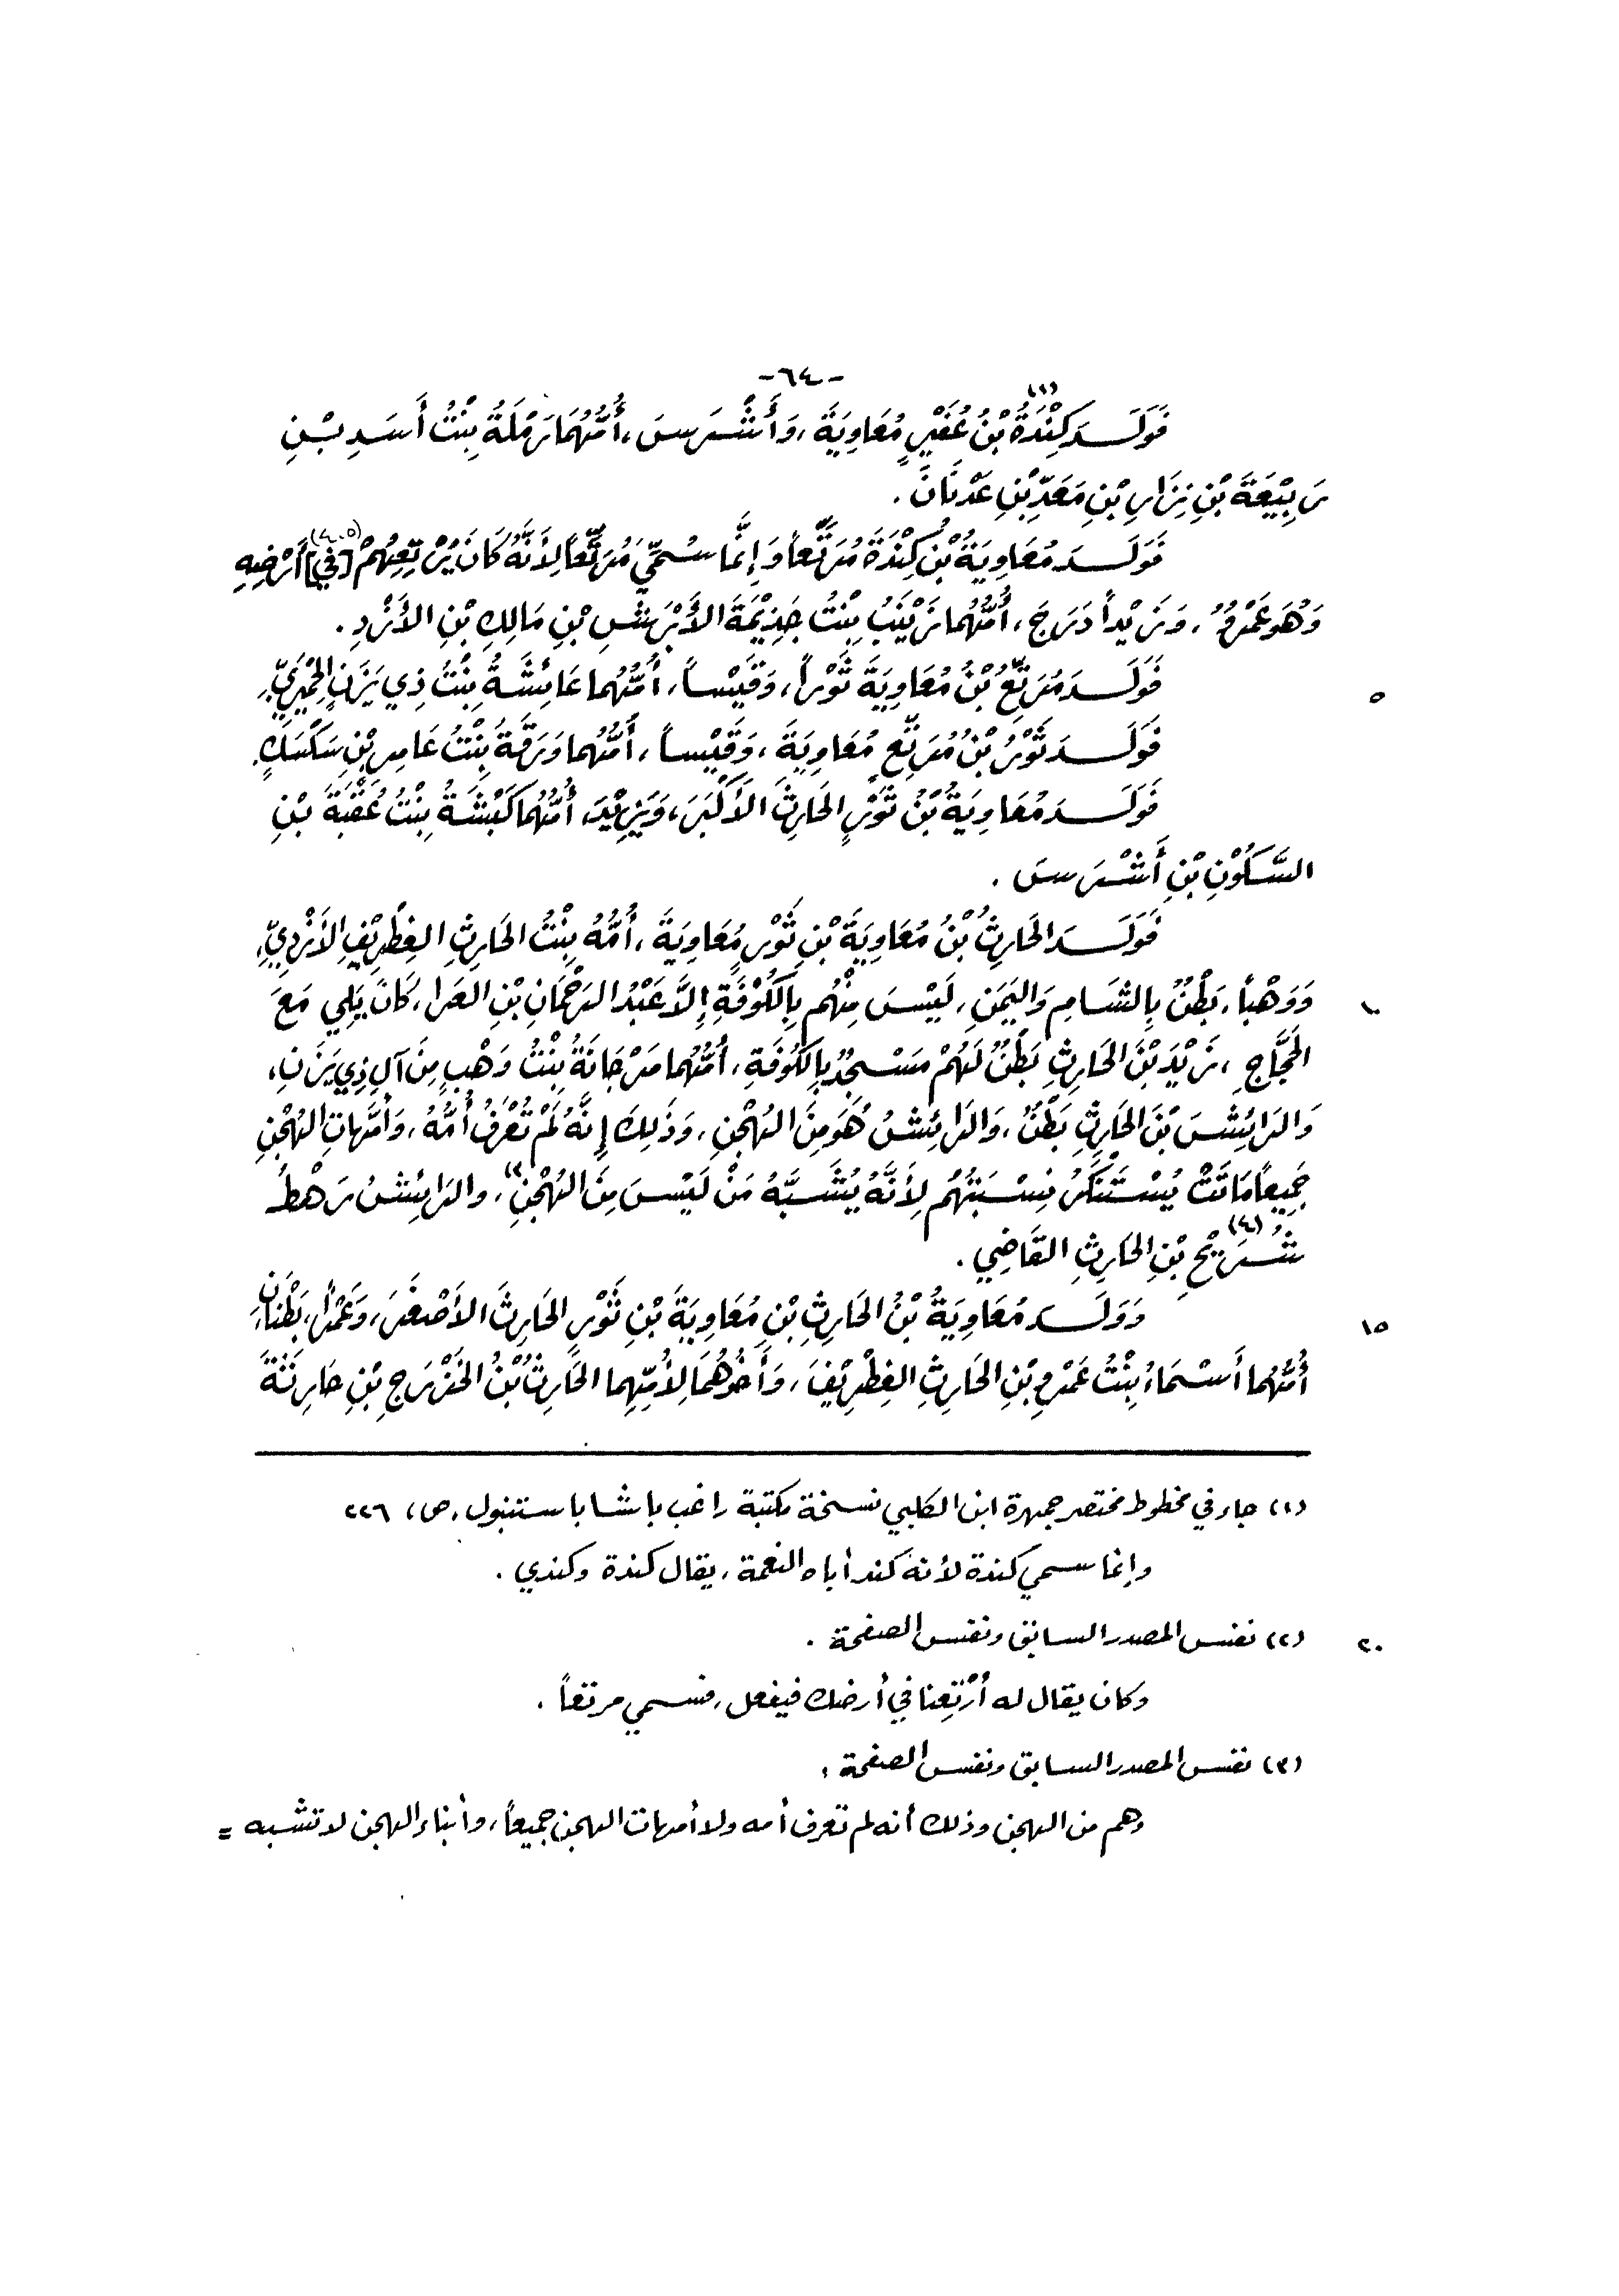 -٦٤-
فَوَلَدَ كِنْدَةُ(١) بْنُ عُفَيْرٍ مُعَاوِيَةَ، وَأَشْرَسَ، أُمُّهُمَا رَمْلَةُ بِنْتُ أَسَدِ بْنِ
رَبِيْعَةَ بْنِ نِزَارِ بْنِ مَعَدِّ بْنِ عَدْنَانَ.
فَوَلَدَ مُعَاوِيَةُ بْنُ كِنْدَةَ مُرَتِّعاً وَإِنَّمَا سُمِّيَ مُرَتِّعاً لِأَنَّهُ كَانَ يُرْتِعُهُمْ [فِي] أَرْضِهِ
وَهُوَ عَمْرٌو، وَزَيْداً دَرَجَ، أُمُّهُما زَيْنَبُ بِنْتُ جَذِيْمَةَ الأَبْرَشِ بْنِ مَالِكِ بْنِ الأَزْدِ.
٥ فَوَلَدَ مُرَتِّعُ بْنُ مُعَاوِيَةَ ثَوْراً، وَقَيْساً، أُمُّهُما عَائِشَةُ بِنْتُ ذِي يَزَنٍ الحِمْيَرِيِّ.
فَوَلَدَ ثَوْرُ بْنُ مُرَتِّعٍ مُعَاوِيَةَ، وَقَيْساً، أُمُّهُما وَرَقَةُ بِنْتُ عَامِرِ بْنِ سَكْسَكٍ.
فَوَلَدَ مُعَاوِيَةُ بْنُ ثَوْرٍ الحَارِثَ الأَكْبَرَ، وَيَزِيْدَ، أُمُّهُمَا كَبْشَةُ بِنْتُ عُقْبَةَ بْنِ
السَّكُوْنِ بْنِ أَشْرَسَ.
فَوَلَدَ الحَارِثُ بْنُ مُعَاوِيَةَ بْنِ ثَوْرٍ مُعَاوِيَةَ، أُمُّهُ بِنْتُ الحَارِثِ الغِطْرِيْفِ الأَزْدِيِّ،
١٠ وَوَهْباً، بَطْنٌ بِالشَّامِ وَاليَمَنِ، لَيْسَ مِنْهُم بِالكُوْفَةِ إِلاَّ عَبْدُ الرَحْمَانِ بْنِ العَرا، كَانَ يَلِي مَعَ
الحَجَّاجِ، وَزَيْدَ بْنَ الحَارِثِ بَطْنٌ لَهُمْ مَسْجِدٌ بِالكُوفَةِ، أُمُّهُما مَرْجَانَةُ بِنْتُ وَهْبٍ مِنَ آلِ ذِي يَزَنِ،
وَالرَائِشَ بْنَ الحَارِثِ بَطْنٌ، وَالرَائِشُ هُوَ مِنَ الهُجْنِ، وَذَلِكَ إِنَّهُ لَمْ تُعْرَفْ أُمُّهُ، وَأُمَّهَاتِ الهُجْنِ
جَمِيعاً مَاتَتْ يُسْتَنْكَرُ نِسْبَتُهُم لِأَنَّهُ يُشَبَّهُ مَنْ لَيْسَ مِنَ الهُجْنِ، والرَائِشُ رَهْطُ
شُرَيْحِ(٤) بْنِ الحَارِثِ القَاضِي.
١٥ وَوَلَدَ مُعَاوِيَةُ بْنُ الحَارِثِ بْنِ مُعَاوِيَةَ بْنِ ثَوْرٍ الحَارِثَ الأَصْغَرَ، وَعَمْراً، بَطْنَانِ،
أُمُّهُما أَسْمَاءُ بِنْتُ عَمْرِو بْنِ الحَارِثِ الغِطْرِيْفِ، وَأَخُوْهُمَا لِأُمِّهِما الحَارِثُ بْنُ الخَزْرَجِ بْنِ حَارِثَةَ
(١) جاء في مخطوط مختصر جمهرة ابن الكلبي نسخة مكتبة راغب باشا باستنبول، ص، ٢٢٦
وإنما سمي كندة لأنه كند أباه النعمة، يقال كندة وكندي.
٢٠ (٢) نفس المصدر السابق ونفس الصفحة.
وكان يقال له أَرْتِعنا في أرضك فيفعل، فسمي مرتعاً.
(٣) نفس المصدر السابق ونفس الصفحة:
وهم من الهجن وذلك أنه لم تعرف أمه ولا أمهات الهجن جميعاً، وأبناء الهجن لا تشبه =